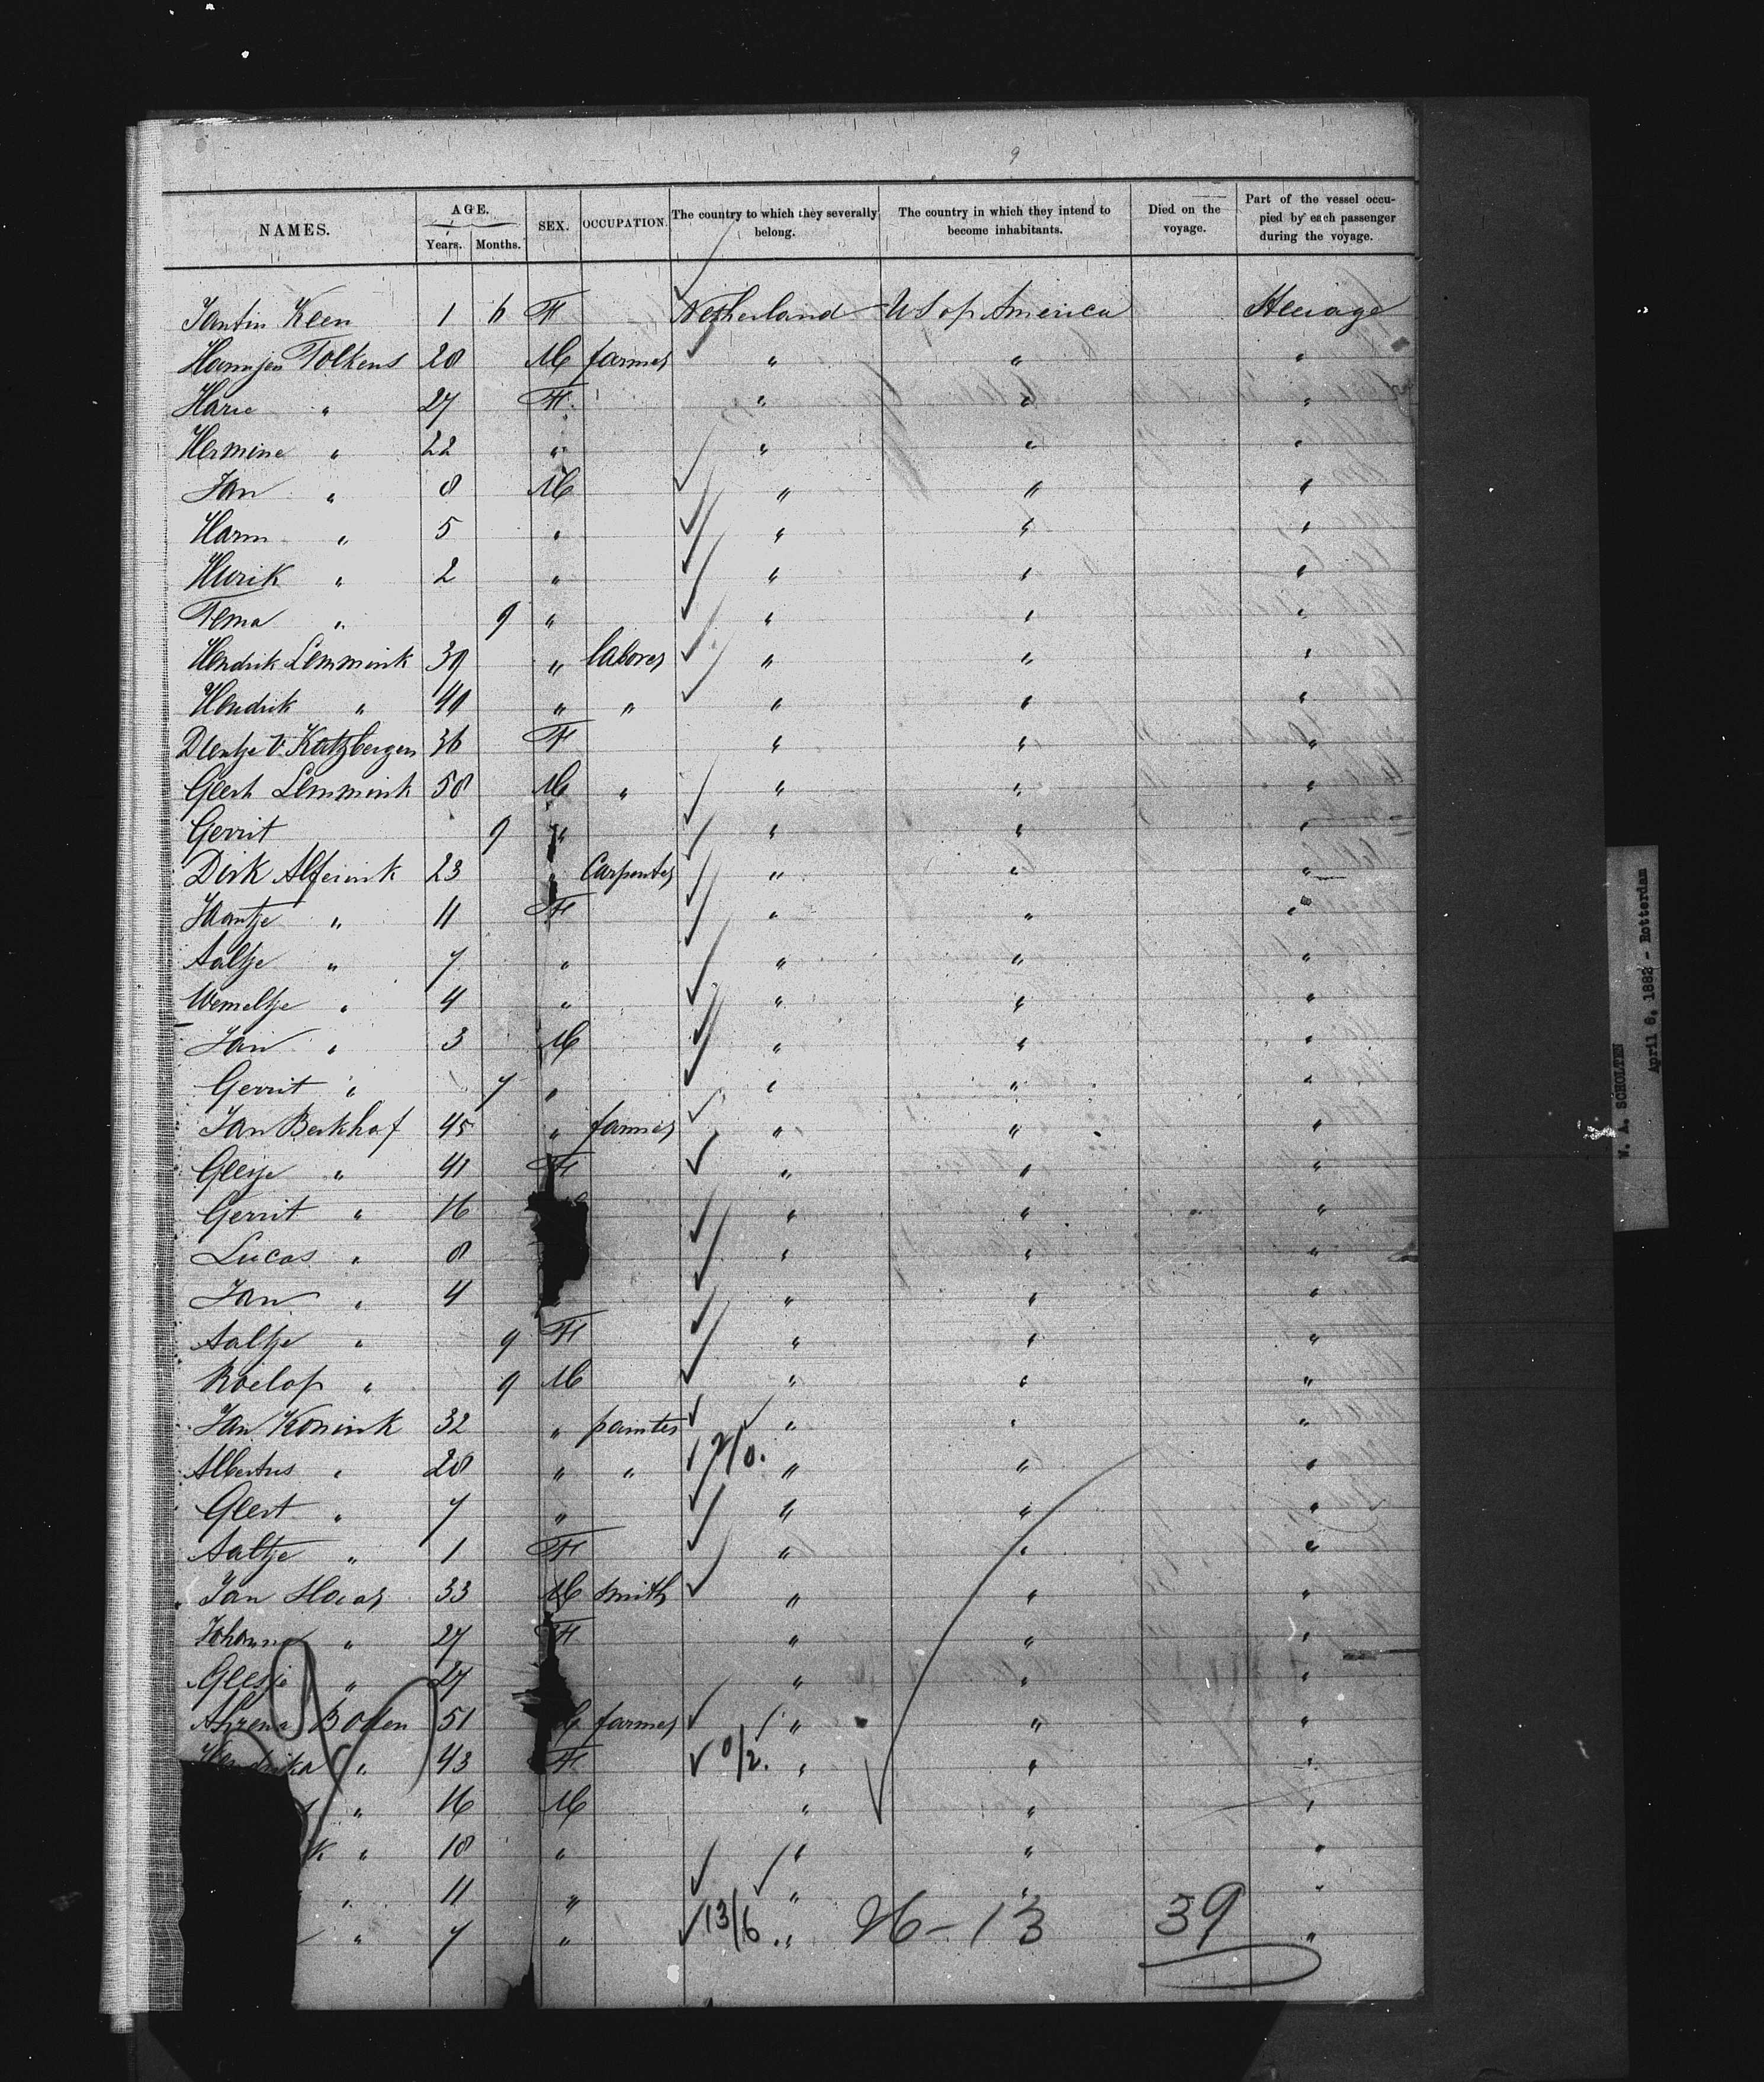 9
NAMES. AGE. Years. Months. SEX. OCCUPATION. The country to which they severally belong. The country in which they intend to become inhabitants. Died on the voyage. Part of the vessel occupied by each passenger during the voyage.
Jantin Keen 1 6 F Netherland US of America Steerage
Harmjen Folkens 28 M farmer " " "
Harie " 27 F " " "
Hermine " 22 " " " "
Jan " 8 M " " "
Harm " 5 " " " "
Hurik " 2 " " " "
Fema " 9 " " " "
Hendrik Lemmink 39 " laborer " " "
Hendrik " 40 " " " " "
Dientje V. Kutzbergen 36 F " " "
Geert Lemmink 58 M " " " "
Gerrit 9 " " " "
Dirk Alferink 23 " Carpenter " " "
Jantje " 11 F " " "
Aaltje " 7 " " " "
Wemeltje " 4 " " " "
Jan " 3 M " " "
Gerrit " 7 " " " "
Jan Berkhof 45 " farmer " " "
Geesje " 41 F " " "
Gerrit " 16 " " "
Lucas " 8 " " "
Jan " 4 " " "
Aaltje " 9 F " " "
Roelof " 9 M " " "
Jan Konink 32 " painter " " "
Albertus " 28 " " 2/0. " " "
Geert " 7 " " " "
Aaltje " 1 F " " "
Jan 33 M smith " " "
Johanna " 27 F " " "
Geesje " 27 " " "
Boden 51 M farmer " " "
Hendrika " 43 F 0/2. " " "
" 16 M " " "
k " 18 " " " "
" 11 " " "
" 7 " 13/6 " 26-13 39 "
W. A. SCHOLTEN
April 6, 1882 - Rotterdam